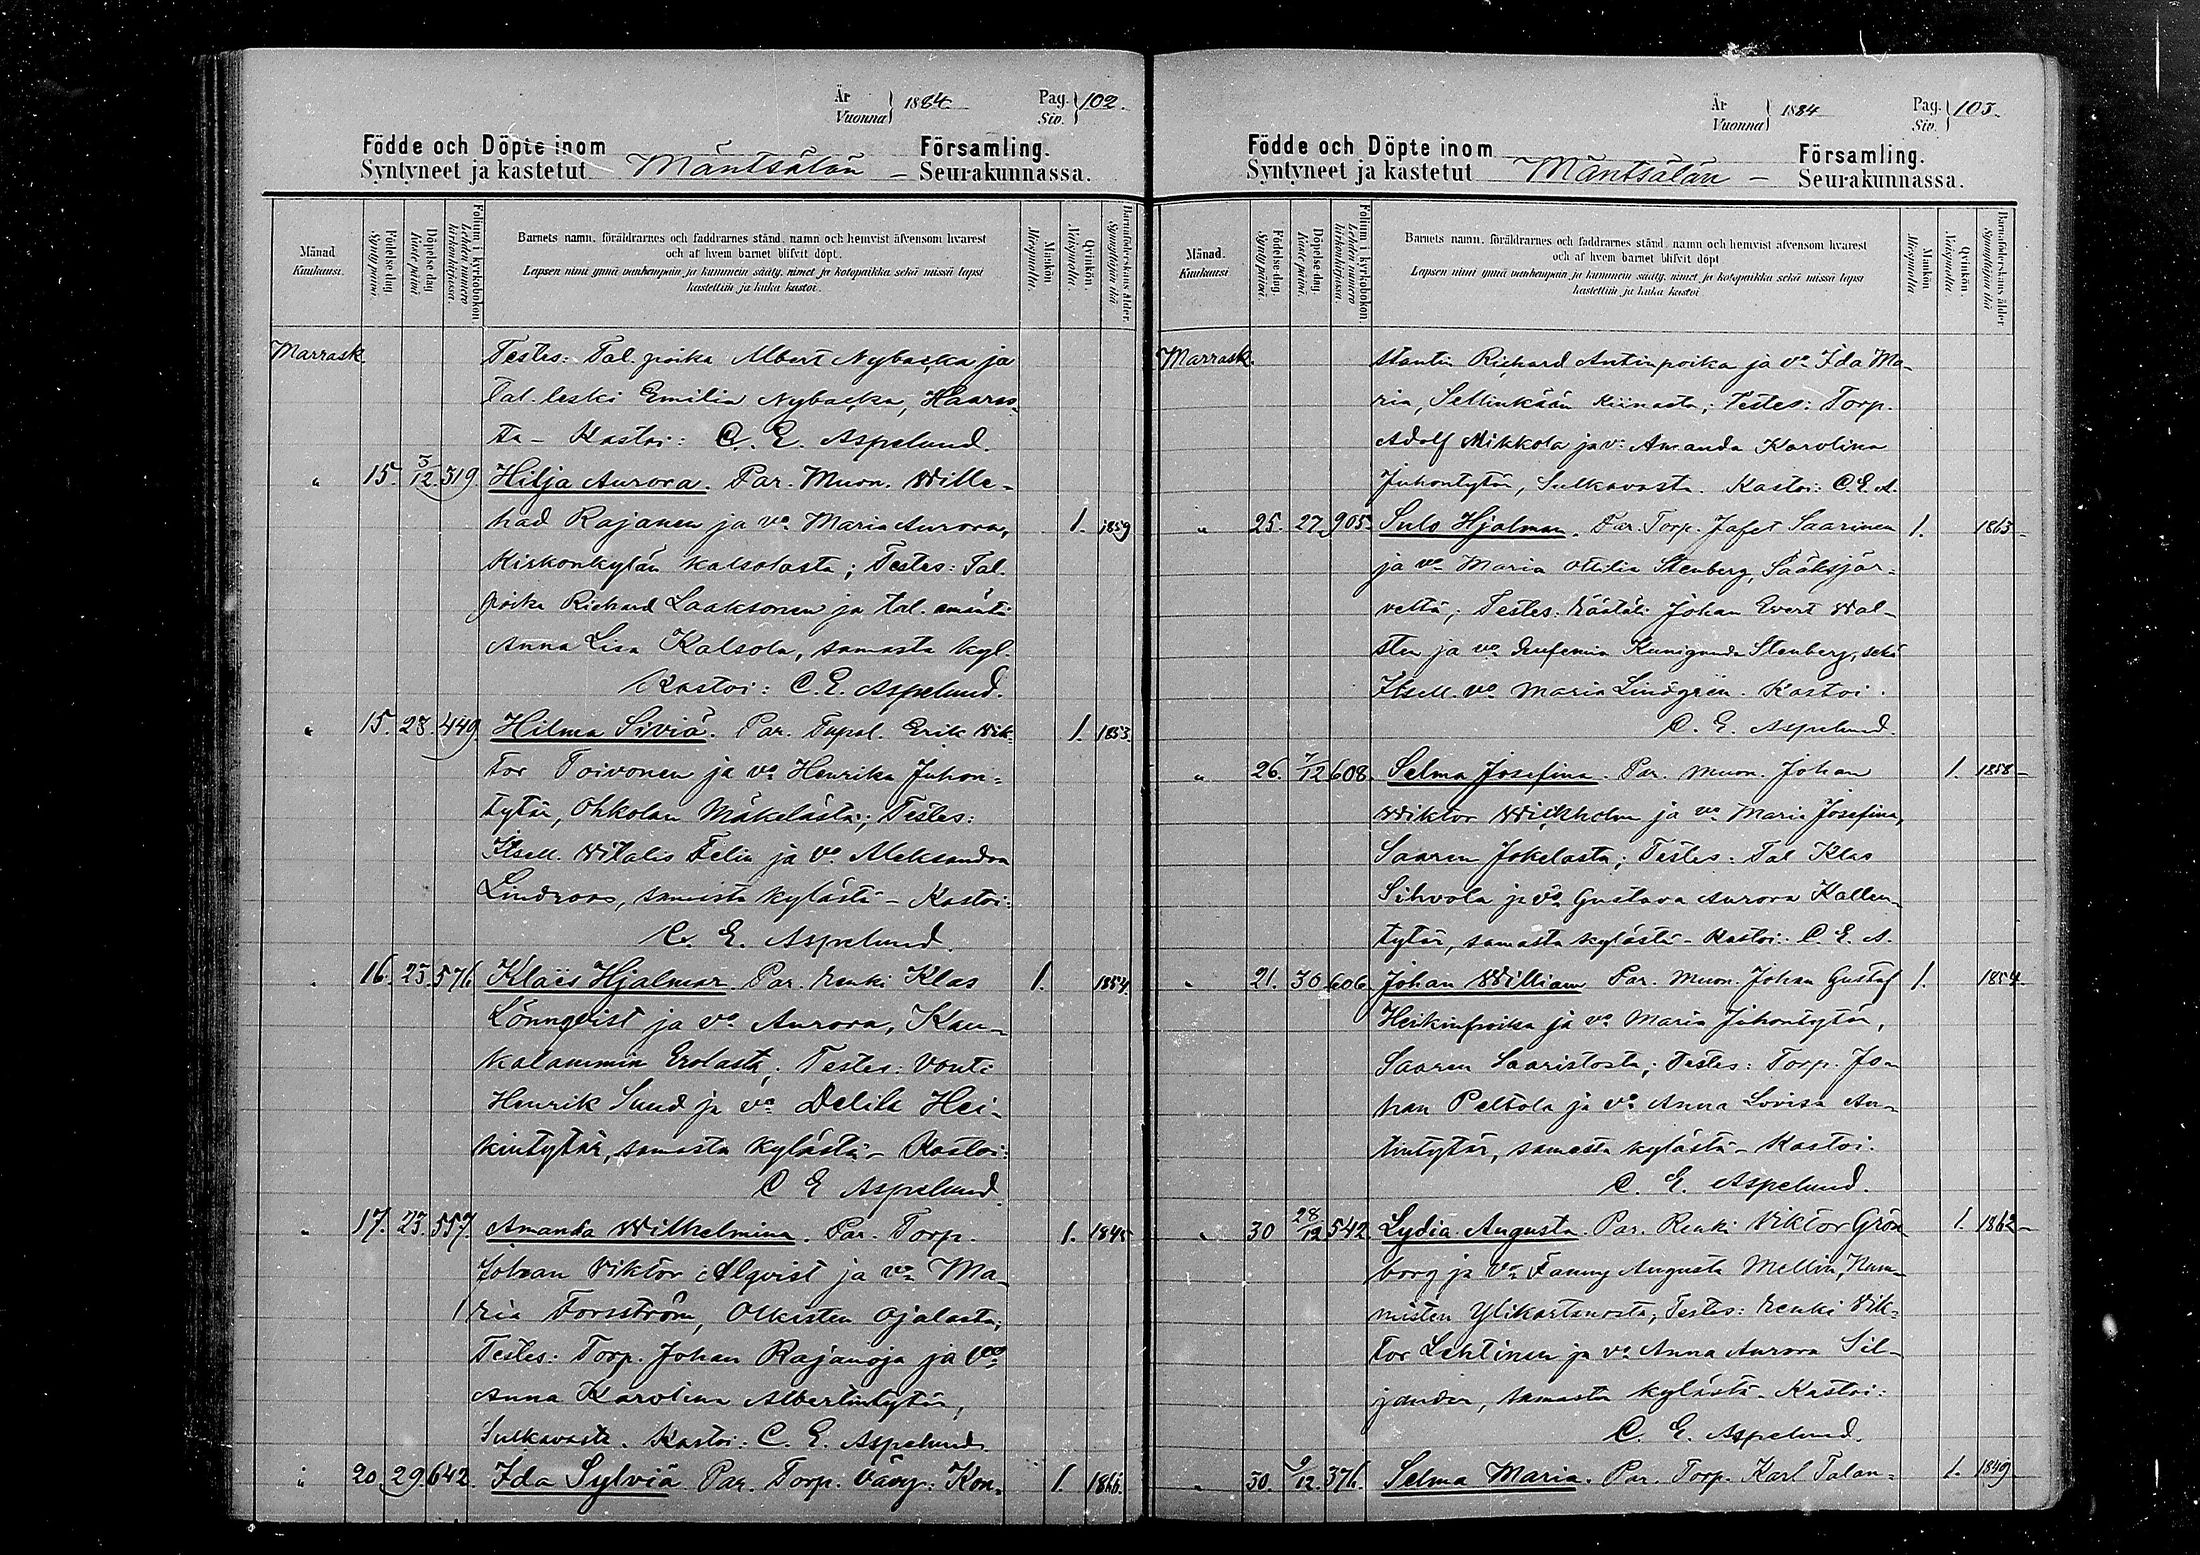 År
Vuonna } 1884.
Pag.
Siv. } 102.
Födde och Döpte inom
Syntyneet ja kastetut Mäntsälän – Församling.
Seurakunnassa.
Månad.
Kuukausi.
Födelse-dag.
Syntypäivä.
Döpelse-dag.
Kaste-päivä.
Folium i kyrkoboken.
Lehden numero kirkonkirjassa.
Barnets namn, föräldrarnes och faddrarnes stånd, namn och hemvist äfvensom hvarest
och af hvem barnet blifvit döpt.
Lapsen nimi ynnä vanhempain ja kummein sääty, nimet ja kotopaikka sekä missä lapsi
kastettiin ja kuka kastoi.
Mankön.
Miespuolia.
Qvinkön.
Naispuolia.
Barnaföderskans ålder.
Synnyttäjän ikä
Marrask. Testes: Tal. poika Albert Nybacka ja
Tal. leski Emilia Nybacka, Haaris-
ta – Kastoi: C. E. Aspelund.
" 15. 3/12 319 Hilja Aurora. Par. Muon. Wille-
had Rajanen ja vo. Maria Aurora, 1. 1859
Kirkonkylän Kalsolasta; Testes: Tal.
poika Richard Laaksonen ja tal. emäntä
Anna Lisa Kalsola, samasta kyl.
Kastoi: C. E. Aspelund.
" 15. 23. 449 Hilma Siviä. Par. Tupal. Erik Wik- 1. 1853.
tor Toivonen ja vo. Henrika Juhon-
tytär, Ohkolan Mäkelästä; Testes:
Itsell. Witalis Felin ja vo. Aleksandra
Lindroos, samasta kylästä – Kastoi:
C. E. Aspelund.
" 16. 23. 576 Klaës Hjalmar. Par. Renki Klas 1. 1854.
Lönnqvist ja vo. Aurora, Kau-
kalammin Erolasta; Testes: Vouti
Henrik Sund ja vo. Delila Hei-
kintytär, samasta kylästä – Kastoi:
C E Aspelund
" 17. 23. 557. Amanda Wilhelmina. Par. Torp. 1. 1845
Johan Viktor Alqvist ja vo. Ma-
ria Forsström, Olkisten Ojalasta;
Testes: Torp. Johan Rajanoja ja vo.
Anna Karolina Albertintytär,
Sulkavasta. Kastoi: C. E. Aspelund
" 20. 29. 642. Ida Sylviä Par. Torp. Kon- 1. 1866.
År
Vuonna } 1884
Pag.
Siv. } 103.
Födde och Döpte inom
Syntyneet ja kastetut Mäntsälän – Församling.
Seurakunnassa.
Månad.
Kuukausi
Födelse-dag.
Syntypäivä.
Döpelse-dag.
Kaste-päivä.
Folium i kyrkoboken.
Lehden numero kirkonkirjassa.
Barnets namn, föräldrarnes och faddrarnes stånd, namn och hemvist äfvensom hvarest
och af hvem barnet blifvit döpt
Lapsen nimi ynnä vanhempain ja kummein sääty, nimet ja kotopaikka sekä missä lapsi
kastettiin ja kuka kastoi
Mankön
Miespuolia
Qvinkön.
Naispuolia.
Barnaföderskans ålder
Synnyttäjän ikä
Marrask. stantin Richard Antinpoika ja vo. Ida Ma-
ria, Sellinkään; Testes: Torp.
Adolf Mikkola ja v: Amanda Karolina
Juhontytär, Sulkavasta. Kastoi: C. E. A.
" 25. 27. 905. Sulo Hjalmar. Par. Torp. Jafet Saarinen 1. 1863
ja vo. Maria Ottilia Stenberg, Sääksjär-
veltä; Testes: Räätäli Johan Evert Wal-
sten ja vo. Eufemia Kunigunda Stenberg, sekä
Itsell. vo. Maria Lindgren. Kastoi.
C. E. Aspelund.
" 26. 7/12 608. Selma Josefina. Par. Muon. Johan 1. 1858
Wiktor Wickholm ja vo. Maria Josefina,
Saaren Jokelasta; Testes: Tal Klas
Sihvola ja vo. Gustava Aurora Kallen-
tytär, samasta kylästä – Kastoi: C. E. A.
" 21. 30 606 Johan William Par. Muon. Johan Gustaf 1. 1854
Heikinpoika ja vo. Maria Juhontytär,
Saaren Saaristosta; Testes: Torp. Jo-
han Peltola ja vo. Anna Lovisa An-
tintytär, samasta kylästä – Kastoi.
C. E. Aspelund.
" 30 28/12 542 Lydia Augusta. Par. Renki Viktor Grön- 1. 1862
borg ja vo. Fanny Augusta Mellin, Num-
misten Ylikartanosta; Testes: Renki Vik-
tor Lehtinen ja vo. Anna Aurora Sil-
jander, samasta kylästä – Kastoi:
C. E. Aspelund.
" 30. 9/12 376. Selma Maria. Par. Torp. Karl Talan- 1. 1849